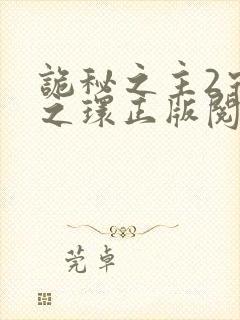 詭秘之主2宿
之環正版閱
莞卓